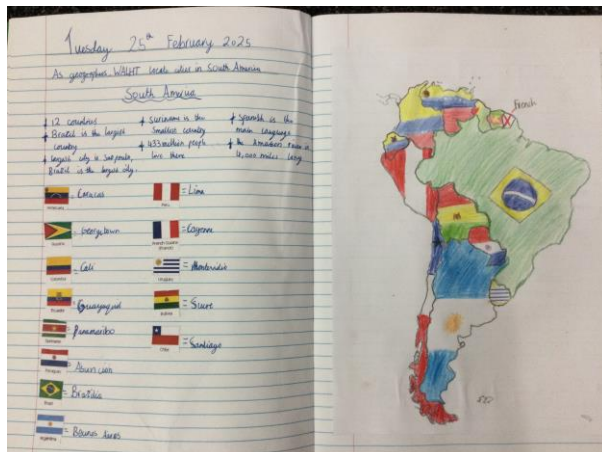 Tuesday 25th February 2025
As geographers WALHT locate cities in South America
South America
+ 12 countries
+ Brazil is the largest
country
+ largest city is Sao paulo,
Brazil is the largest city.
+ Suriname is the
smallest country
+ 433 million people
live there
+ Spanish is the
main language
+ the Amazon river is
4,000 miles long
Venezuela = Caracas
Guyana = Georgetown
Colombia = Cali
Ecuador = Guayaquil
Suriname = Paramaribo
Paraguay = Asuncion
Brazil = Brasilia
Argentina = Buenos Aires
Peru = Lima
French Guiana
(French) = Cayenne
Uruguay = Montevideo
Bolivia = Sucre
Chile = Santiago
French